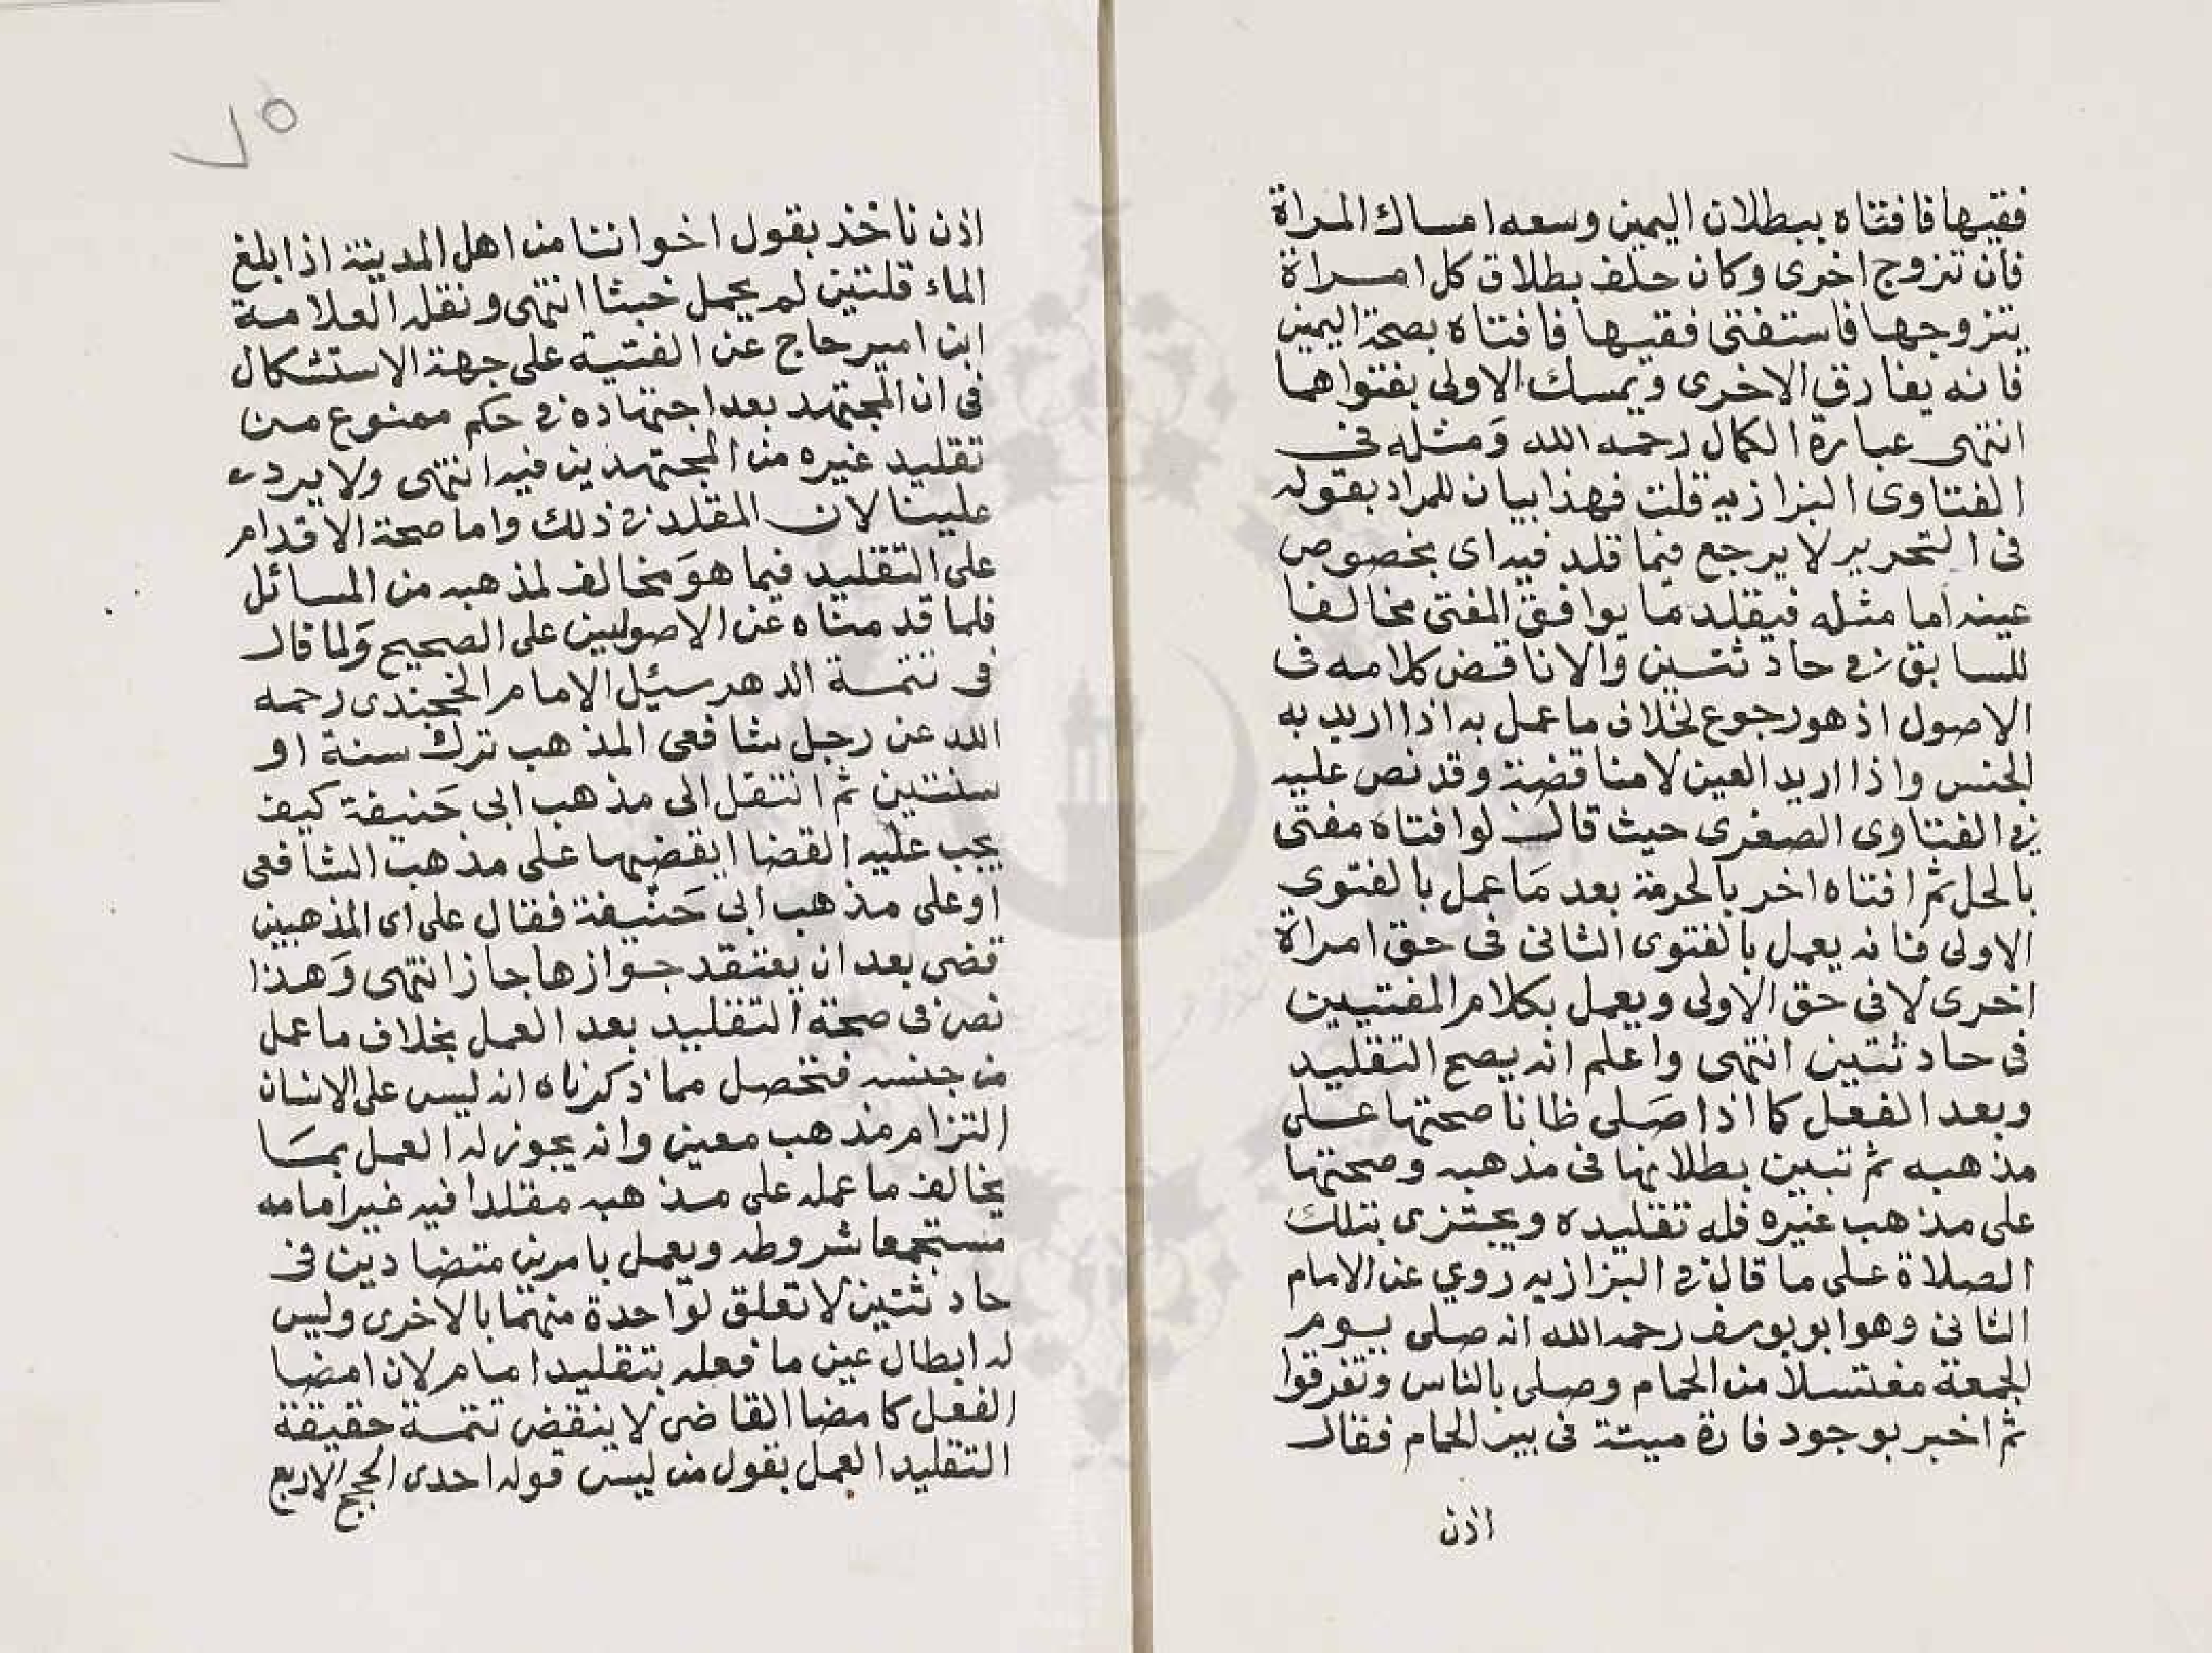 فقيها فافتاه ببطلان اليمين وسعه امساك المراة
فان تزوج اخرى وكان حلف بطلاق كل امراة
يتزوجها فاستفتى فقيها فافتاه بصحة اليمين
فانه يفارق الاخرى ويمسك الاولى بفتواهما
انتهى عبارة الكمال رحمه الله ومثله فى
الفتاوى البزازيه قلت فهذا بيان للمراد بقوله
فى التحرير لا يرجع فيما قلد فيه اى بخصوص
عينه اما مثله فيقلد ما يوافق المفتى مخالفا
للسابق فى حادثتين والا ناقض كلامه فى
الاصول اذ هو رجوع لخلاف ما عمل به اذا اريد به
الجنس واذا اريد العين لا مناقضة وقد نص عليه
فى الفتاوى الصغرى حيث قال لو افتاه مفتى
بالحل ثم افتاه اخر بالحرمة بعد ما عمل بالفتوى
الاولى فانه يعمل بالفتوى الثانى فى حق امراة
اخرى لا فى حق الاولى ويعمل بكلام المفتيين
فى حادثتين انتهى واعلم انه يصح التقليد
وبعد الفعل كما اذا صلى ظانا صحتها على
مذهبه ثم تبين بطلانها فى مذهبه وصحتها
على مذهب غيره فله تقليده ويجتزى بتلك
الصلاة على ما قال فى البزازيه روي عن الامام
الثانى وهو ابو يوسف رحمه الله انه صلى يوم
الجمعة مغتسلا من الحمام وصلى بالناس وتفرقوا
ثم اخبر بوجود فارة ميتة فى بير الحمام فقال
اذن
٧٥
اذن ناخذ بقول اخواننا من اهل المدينة اذا بلغ
الماء قلتين لم يحمل خبثا انتهى ونقله العلامة
ابن امير حاج عن القنية على جهة الاستشكال
فى ان المجتهد بعد اجتهاده فى حكم ممنوع من
تقليد غيره من المجتهدين فيه انتهى ولا يرد
علينا لان المقلد فى ذلك واما صحة الاقدام
على التقليد فيما هو مخالف لمذهبه من المسائل
فلما قدمناه عن الاصوليين على الصحيح ولما قال
فى تتمة الدهر سئل الامام الخجندى رحمه
الله عن رجل شافعى المذهب ترك سنة او
سنتين ثم انتقل الى مذهب ابى حنيفة كيف
يجب عليه القضا ايقضيها على مذهب الشافعى
او على مذهب ابى حنيفة فقال على اى المذهبين
قضى بعد ان يعتقد جوازها جاز انتهى وهذا
نص فى صحة التقليد بعد العمل بخلاف ما عمل
من جنسه فتحصل مما ذكرناه انه ليس على الانسان
التزام مذهب معين وانه يجوز له العمل بما
يخالف ما عمله على مذهبه مقلدا فيه غير امامه
مستجمعا شروطه ويعمل بامرين متضادين فى
حادثتين لا تعلق لواحدة منهما بالاخرى وليس
له ابطال عين ما فعله بتقليد امام لان امضا
الفعل كامضا القاضى لا ينقض تتمة حقيقة
التقليد العمل بقول من ليس قوله احدى الحجج الاربع